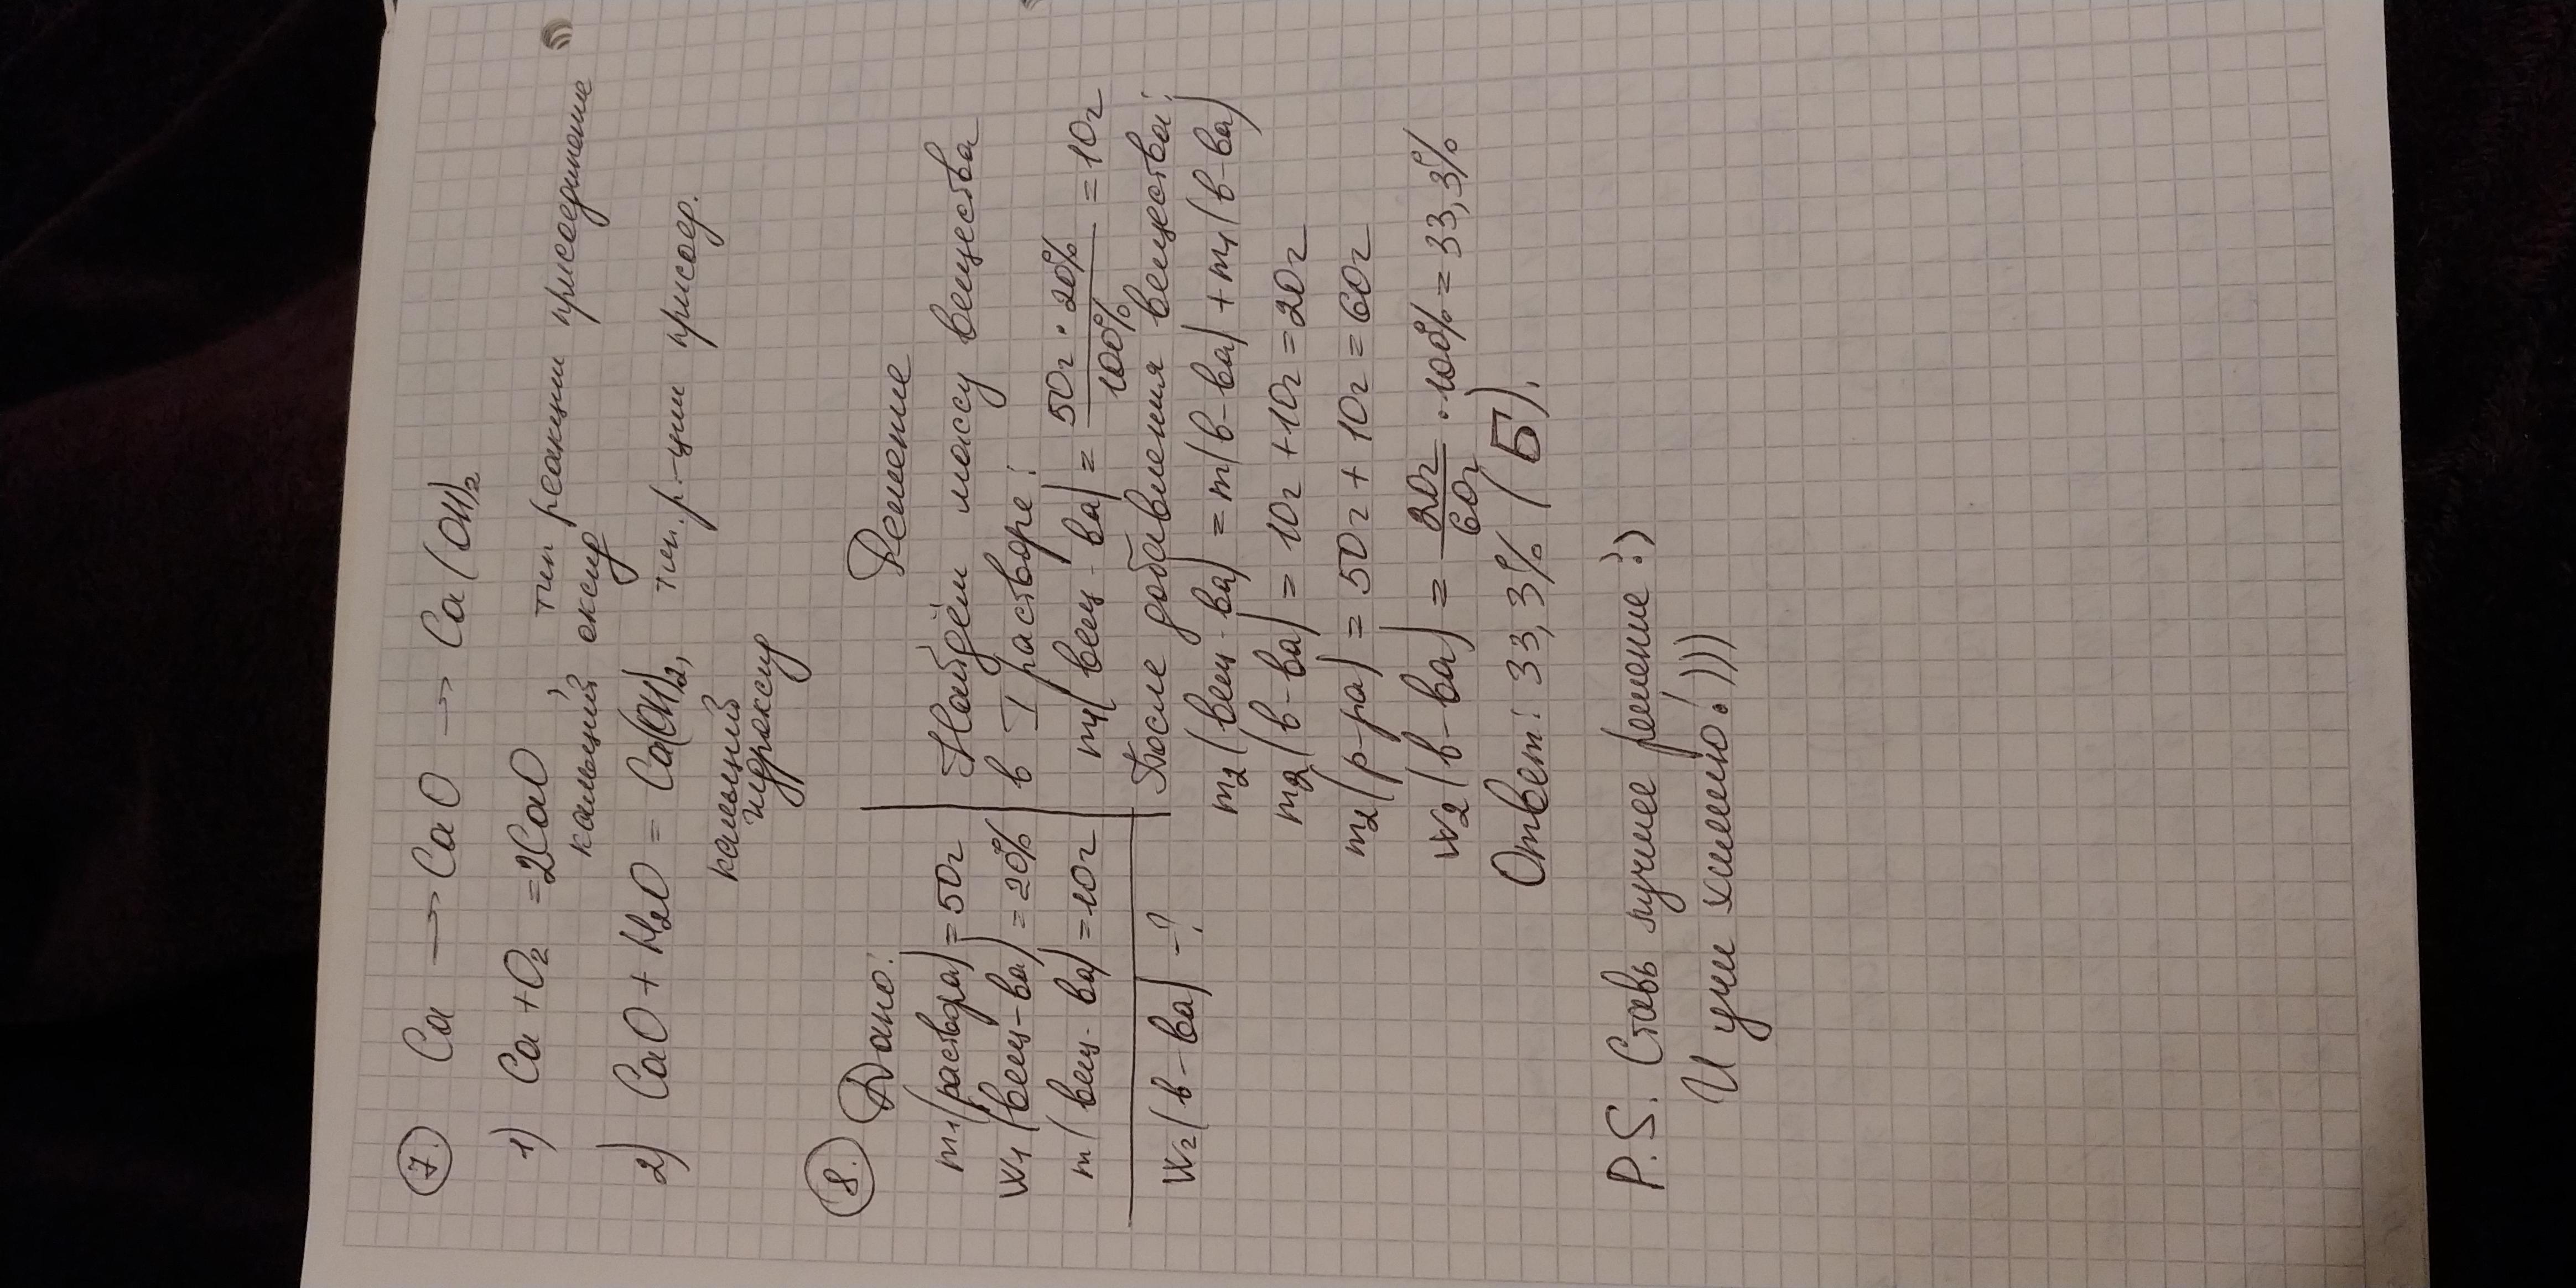 7. Ca → CaO → Ca(OH)₂
1) Ca + O₂ = 2CaO тип реакции присоединение
кальций оксид
2) CaO + H₂O = Ca(OH)₂, тип. р-ции присоед.
кальций
гидроксид
8. Дано: Решение
m₁(раствора) = 50г Найдём массу вещества
w₁(вещ-ва) = 20% в I растворе:
m(вещ-ва) = 10г m₁(вещ-ва) = 50г · 20% / 100% = 10г
w₂(в-ва) - ? После добавления вещества:
m₂(вещ-ва) = m(в-ва) + m₁(в-ва)
m₂(в-ва) = 10г + 10г = 20г
m₂(р-ра) = 50г + 10г = 60г
w₂(в-ва) = 20г / 60г · 100% = 33,3%
Ответ: 33,3% (Б).
P.S. Ставь лучшее решение :)
И учи химию!))))